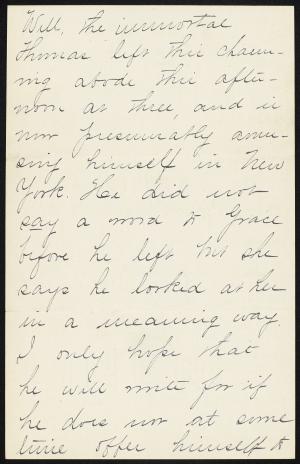 Well, the immortal
Thomas left this charm-
ing abode this after-
noon at three, and is
now presumably amu-
sing himself in New
York. He did not
say a word to Grace
before he left but she
says he looked at her
in a meaning way
I only hope that
he will write for if
he does not at some
time offer himself to